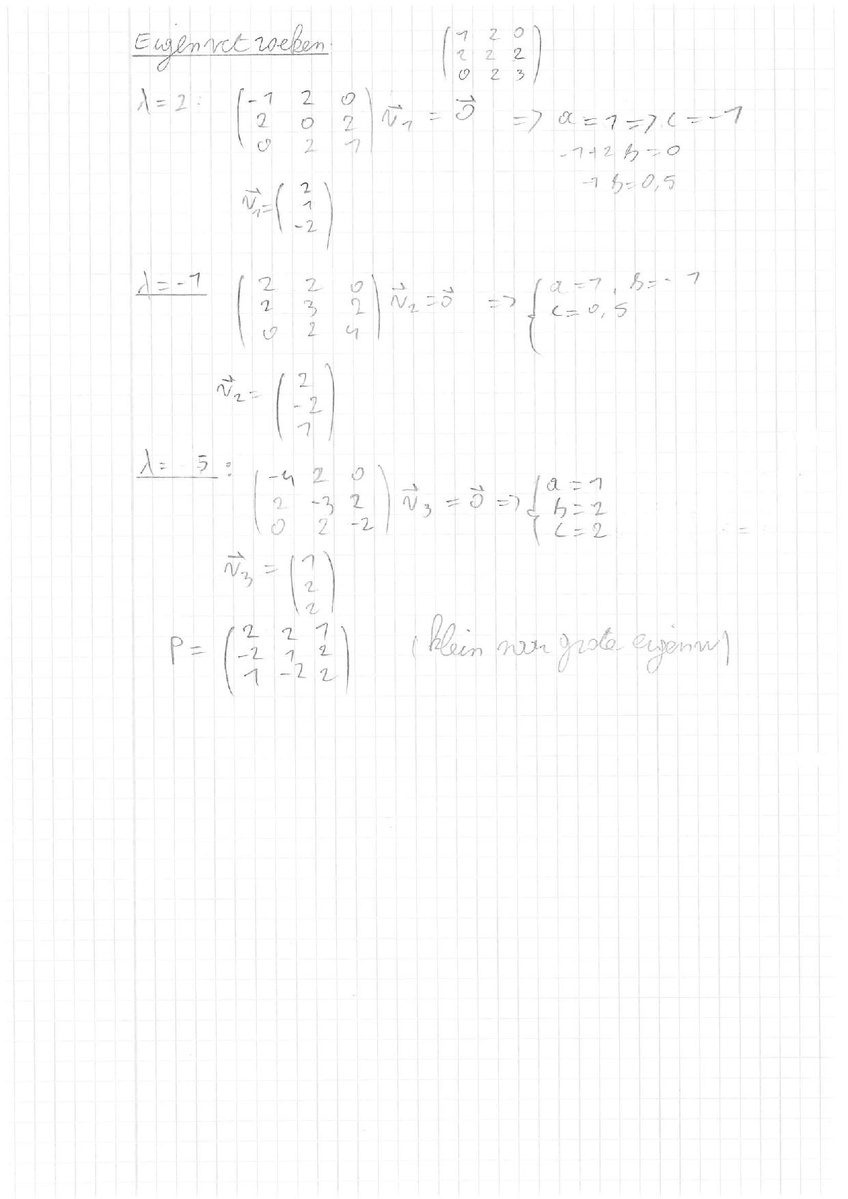 Eigenvct zoeken. (1 2 0
2 2 2
0 2 3)
λ=2: (-1 2 0
2 0 2
0 2 1) v⃗₁ = 0⃗ => a=1 => c=-1
-1+2b=0
→ b=0,5
v⃗₁= (2
1
-2)
λ=-1 (2 2 0
2 3 2
0 2 4) v⃗₂=0⃗ => { a=1, b=-1
c=0,5
v⃗₂= (2
-2
1)
λ= 5: (-4 2 0
2 -3 2
0 2 -2) v⃗₃ = 0⃗ => { a=1
b=2
c=2
v⃗₃ = (1
2
2)
P= (2 2 1
-2 1 2
1 -2 2) (klein naar grote eigenw)